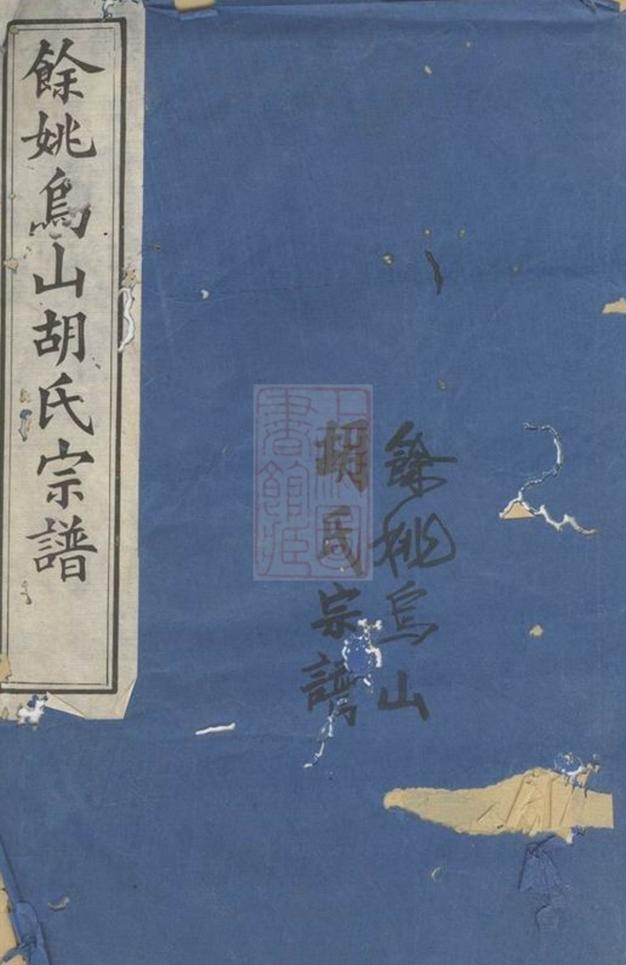 餘姚烏山胡氏宗譜
餘姚烏山
胡氏宗譜
上海圖
書館藏